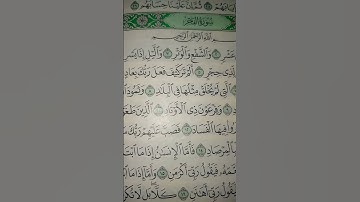 ثُمَّ إِنَّ عَلَيْنَا حِسَابَهُم
سُورَةُ الفَجْرِ
بِسْمِ اللَّهِ الرَّحْمَٰنِ الرَّحِيمِ
عَشْرٍ ۝ وَالشَّفْعِ وَالْوَتْرِ ۝ وَاللَّيْلِ إِذَا يَسْرِ
لِّذِي حِجْرٍ ۝ أَلَمْ تَرَ كَيْفَ فَعَلَ رَبُّكَ بِعَادٍ
الَّتِي لَمْ يُخْلَقْ مِثْلُهَا فِي الْبِلَادِ ۝ وَثَمُودَ
وَفِرْعَوْنَ ذِي الْأَوْتَادِ ۝ الَّذِينَ طَغَوْا
فِيهَا الْفَسَادَ ۝ فَصَبَّ عَلَيْهِمْ رَبُّكَ
لَبِالْمِرْصَادِ ۝ فَأَمَّا الْإِنسَانُ إِذَا مَا ابْتَ
فَيَقُولُ رَبِّي أَكْرَمَنِ ۝ وَأَمَّا إِذَا مَا
فَيَقُولُ رَبِّي أَهَانَنِ ۝ كَلَّا بَل لَّا تُكْرِ